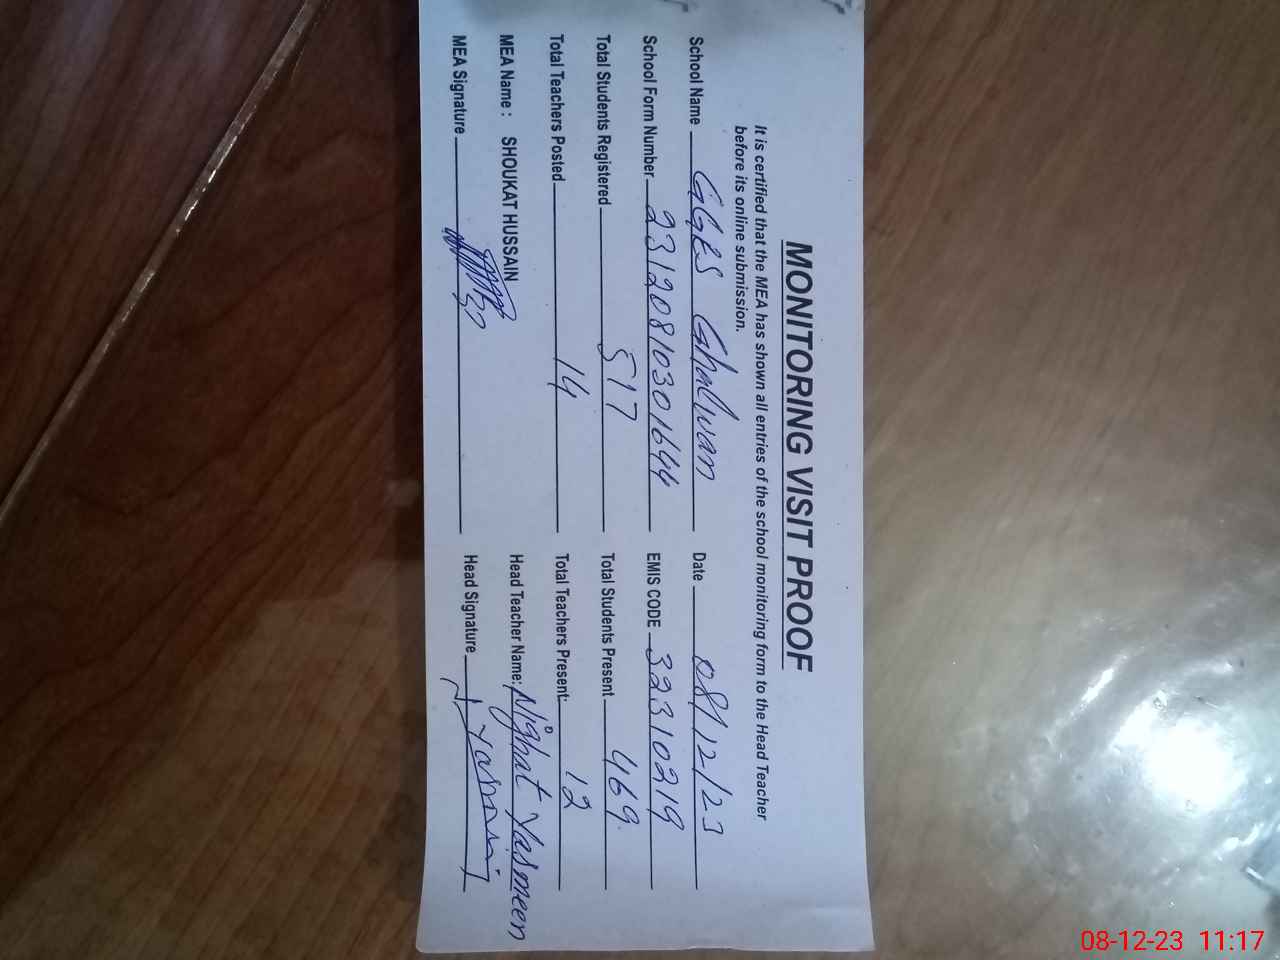 MONITORING VISIT PROOF
It is certified that the MEA has shown all entries of the school monitoring form to the Head Teacher
before its online submission.
School Name GGES Ghalwan Date 08/12/23
School Form Number 23120810301644 EMIS CODE 32310219
Total Students Registered 517 Total Students Present 469
Total Teachers Posted 14 Total Teachers Present: 12
MEA Name : SHOUKAT HUSSAIN Head Teacher Name: Nighat Yasmeen
MEA Signature Head Signature N. Yasmin
08-12-23 11:17